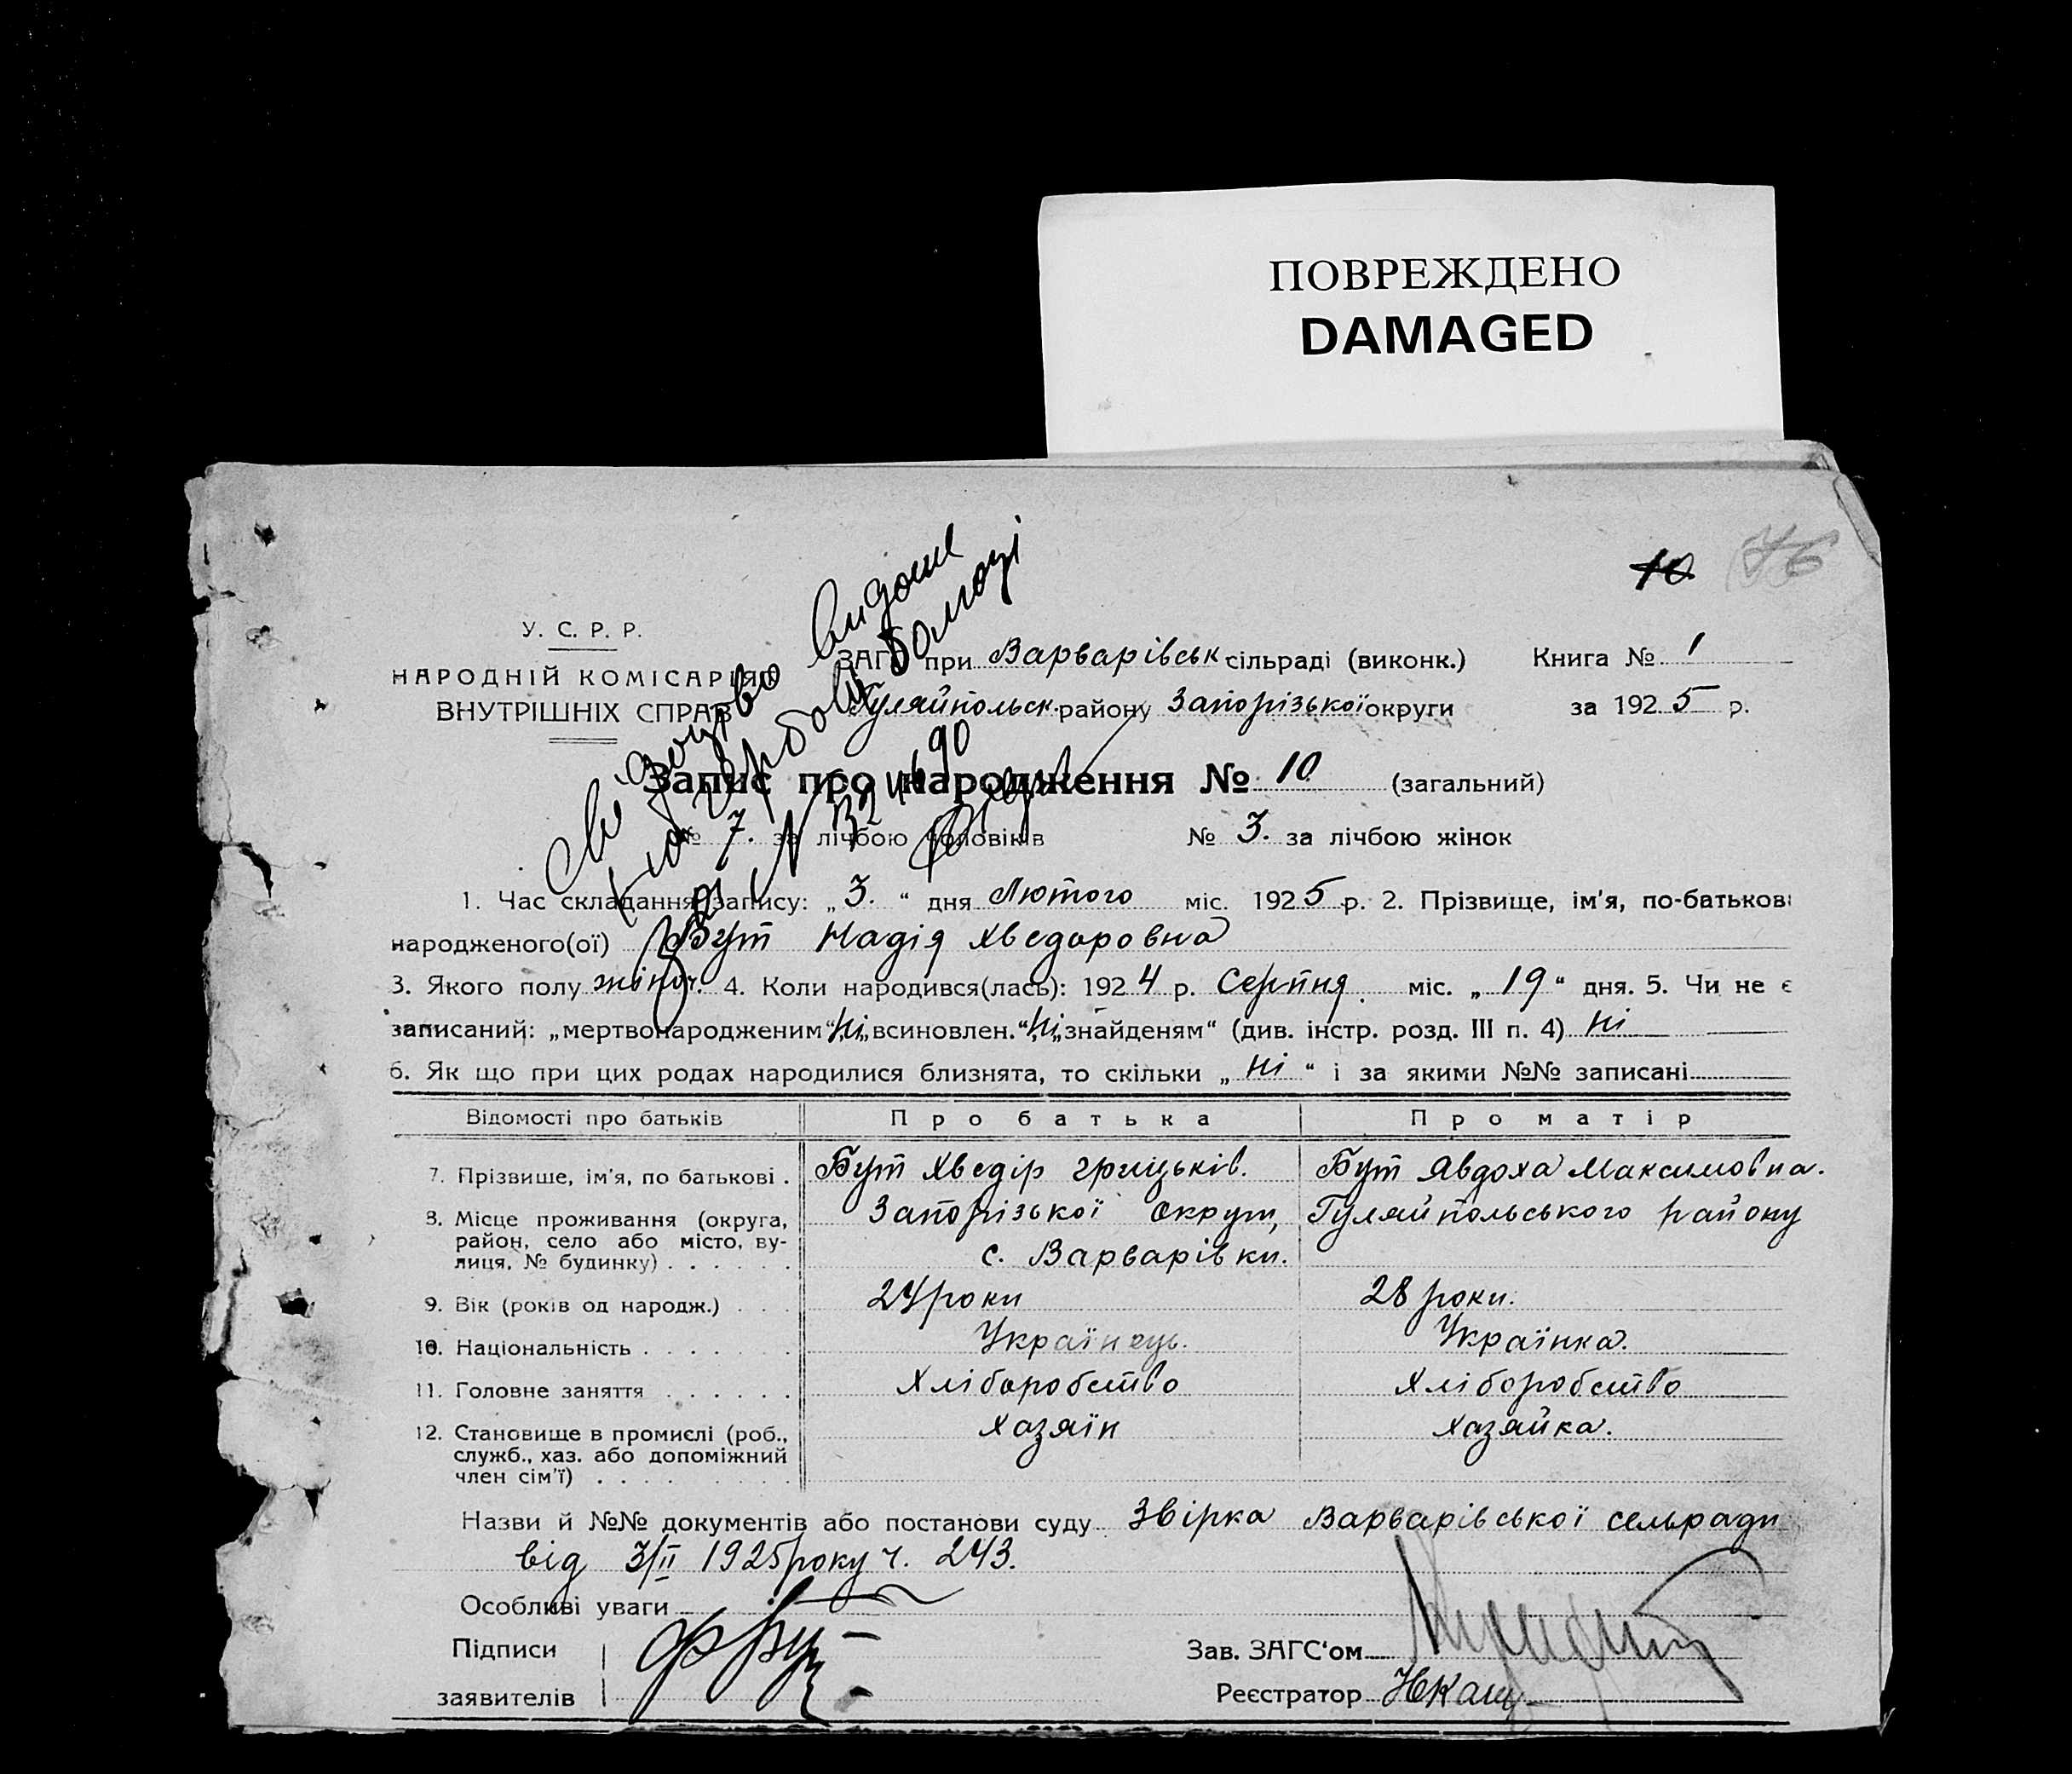 ПОВРЕЖДЕНО
DAMAGED
10 76
У. С. Р. Р.
НАРОДНІЙ КОМІСАРІЯТ
ВНУТРІШНІХ СПРАВ
Свідоцтво видане
ЗАГС при Варварівськ сільраді (виконк.) Книга № 1
Гуляйпольск. району Запорізької округи за 1925 р.
Запис про народження № 10 (загальний)
№ 7. за лічбою чоловіків № 3. за лічбою жінок
1. Час складання запису: „3.“ дня Лютого міс. 1925 р. 2. Прізвище, ім'я, по-батькові
народженого(ої) Бут Надія Хведоровна
3. Якого полу жіноч. 4. Коли народився(лась): 1924 р. Серпня міс. „19“ дня. 5. Чи не є
записаний: „мертвонародженим“ Ні, „всиновлен.“ Ні, „знайденям“ (див. інстр. розд. III п. 4) Ні
6. Як що при цих родах народилися близнята, то скільки „Ні“ і за якими №№ записані
Відомості про батьків Про батька Про матір
7. Прізвише, ім'я, по батькові . Бут Хведір Грицьків. Бут Явдоха Максимовна.
8. Місце проживання (округа, Запорізької Округи, Гуляйпольського району
район, село або місто, ву- с. Варварівки.
лиця, № будинку)
9. Вік (років од народж.) 24 роки 28 роки.
10. Національність Українець. Українка.
11. Головне заняття Хліборобство Хліборобство
12. Становище в промислі (роб., Хазяїн Хазяйка.
служб., хаз. або допоміжний
член сім'ї)
Назви й №№ документів або постанови суду Звірка Варварівської сельради
від 3/II 1925 року ч. 243.
Особливі уваги
Підписи Ф Бут Зав. ЗАГС'ом
заявителів Реєстратор НКащ